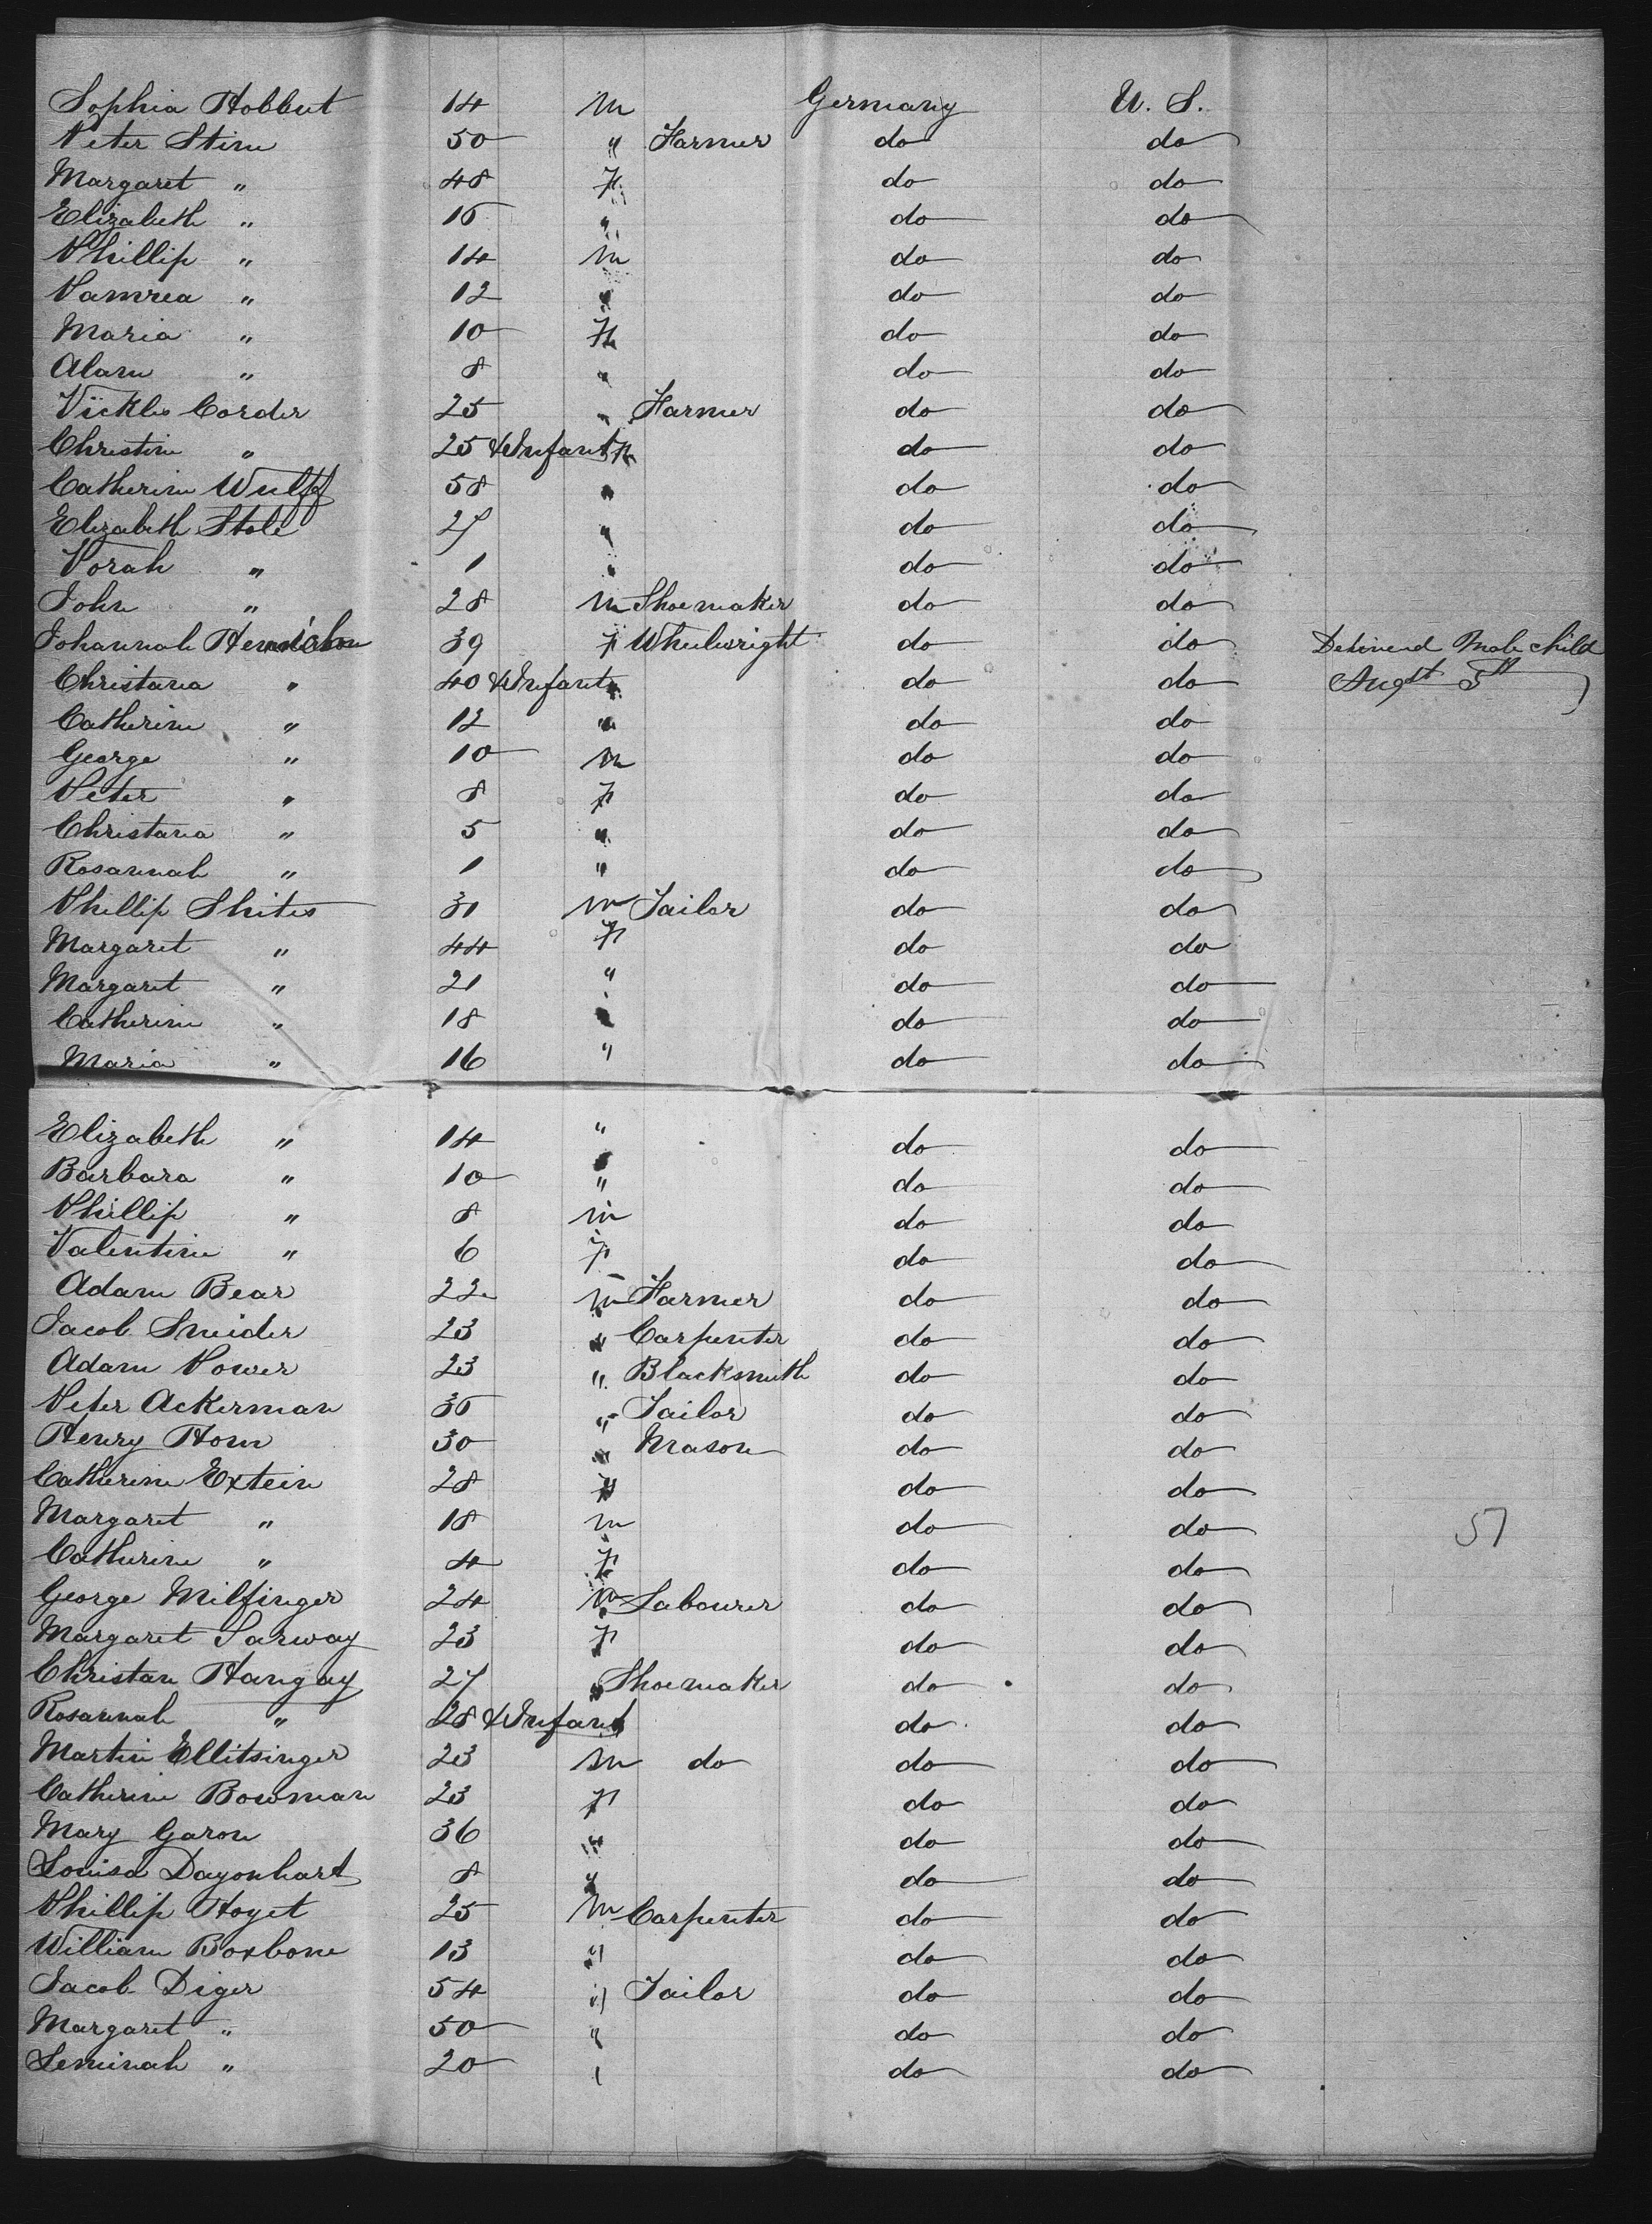 Sophia Hobbut 14 m Germany U. S.
Peter Stine 50 " Farmer do do
Margaret " 48 F do do
Elizabeth " 16 " do do
Phillip " 14 m do do
" 12 " do do
Maria " 10 F do do
Alam " 8 " do do
Corder 25 " Farmer do do
Christine " 25 & Infant F do do
Catherine Wulff 58 " do do
Elizabeth Stole 27 " do do
" 1 " do do
John " 28 m Shoemaker do do
Johannah 39 F Wheelwright do do Delivered Male child
Christana " 40 & Infant " do do Augst 5th
Catherine " 12 " do do
George " 10 m do do
Peter " 8 F do do
Christana " 5 " do do
Rosannah " 1 " do do
Phillip Shites 31 m Tailor do do
Margaret " 44 F do do
Margaret " 21 " do do
Catherine " 18 " do do
Maria " 16 " do do
Elizabeth " 14 " do do
Barbara " 10 " do do
Phillip " 8 m do do
Valentine " 6 F do do
Adam Bear 22 m Farmer do do
Jacob Sneider 23 " Carpenter do do
Adam Power 23 " Blacksmith do do
Peter Ackerman 36 " Tailor do do
Henry Horn 30 " Mason do do
Catherine Extein 28 F do do
Margaret " 18 m do do 57
Catherine " 4 F do do
George Milfinger 24 m Labourer do do
Margaret Sarway 23 F do do
Christan Hangay 27 " Shoemaker do do
Rosannah " 28 & Infant do do
Martin Ellitsinger 23 m do do do
Catherine Bowman 23 F do do
Mary Garon 36 " do do
Louisa Dayonhart 8 " do do
Phillip Hoyet 25 m Carpenter do do
William Boxbone 13 " do do
Jacob Diger 54 " Tailor do do
Margaret " 50 " do do
Leminah " 20 " do do